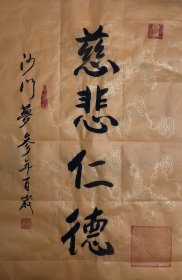 慈悲仁德
沙门梦参年百岁